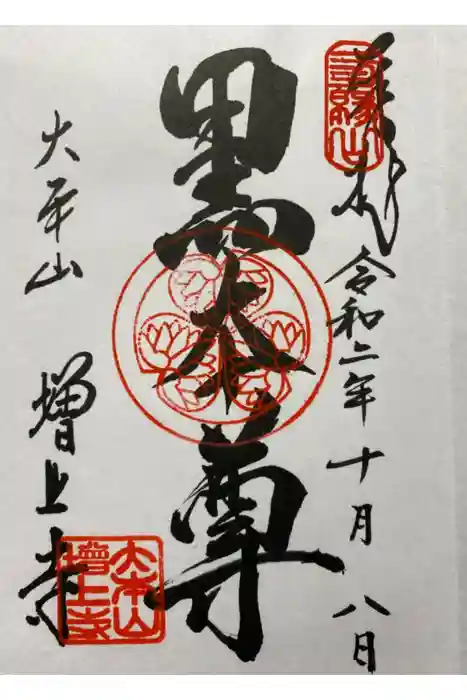 奉拝
令和二年十月八日
黒本尊
大本山
増上寺
三縁山
大本山
増上寺